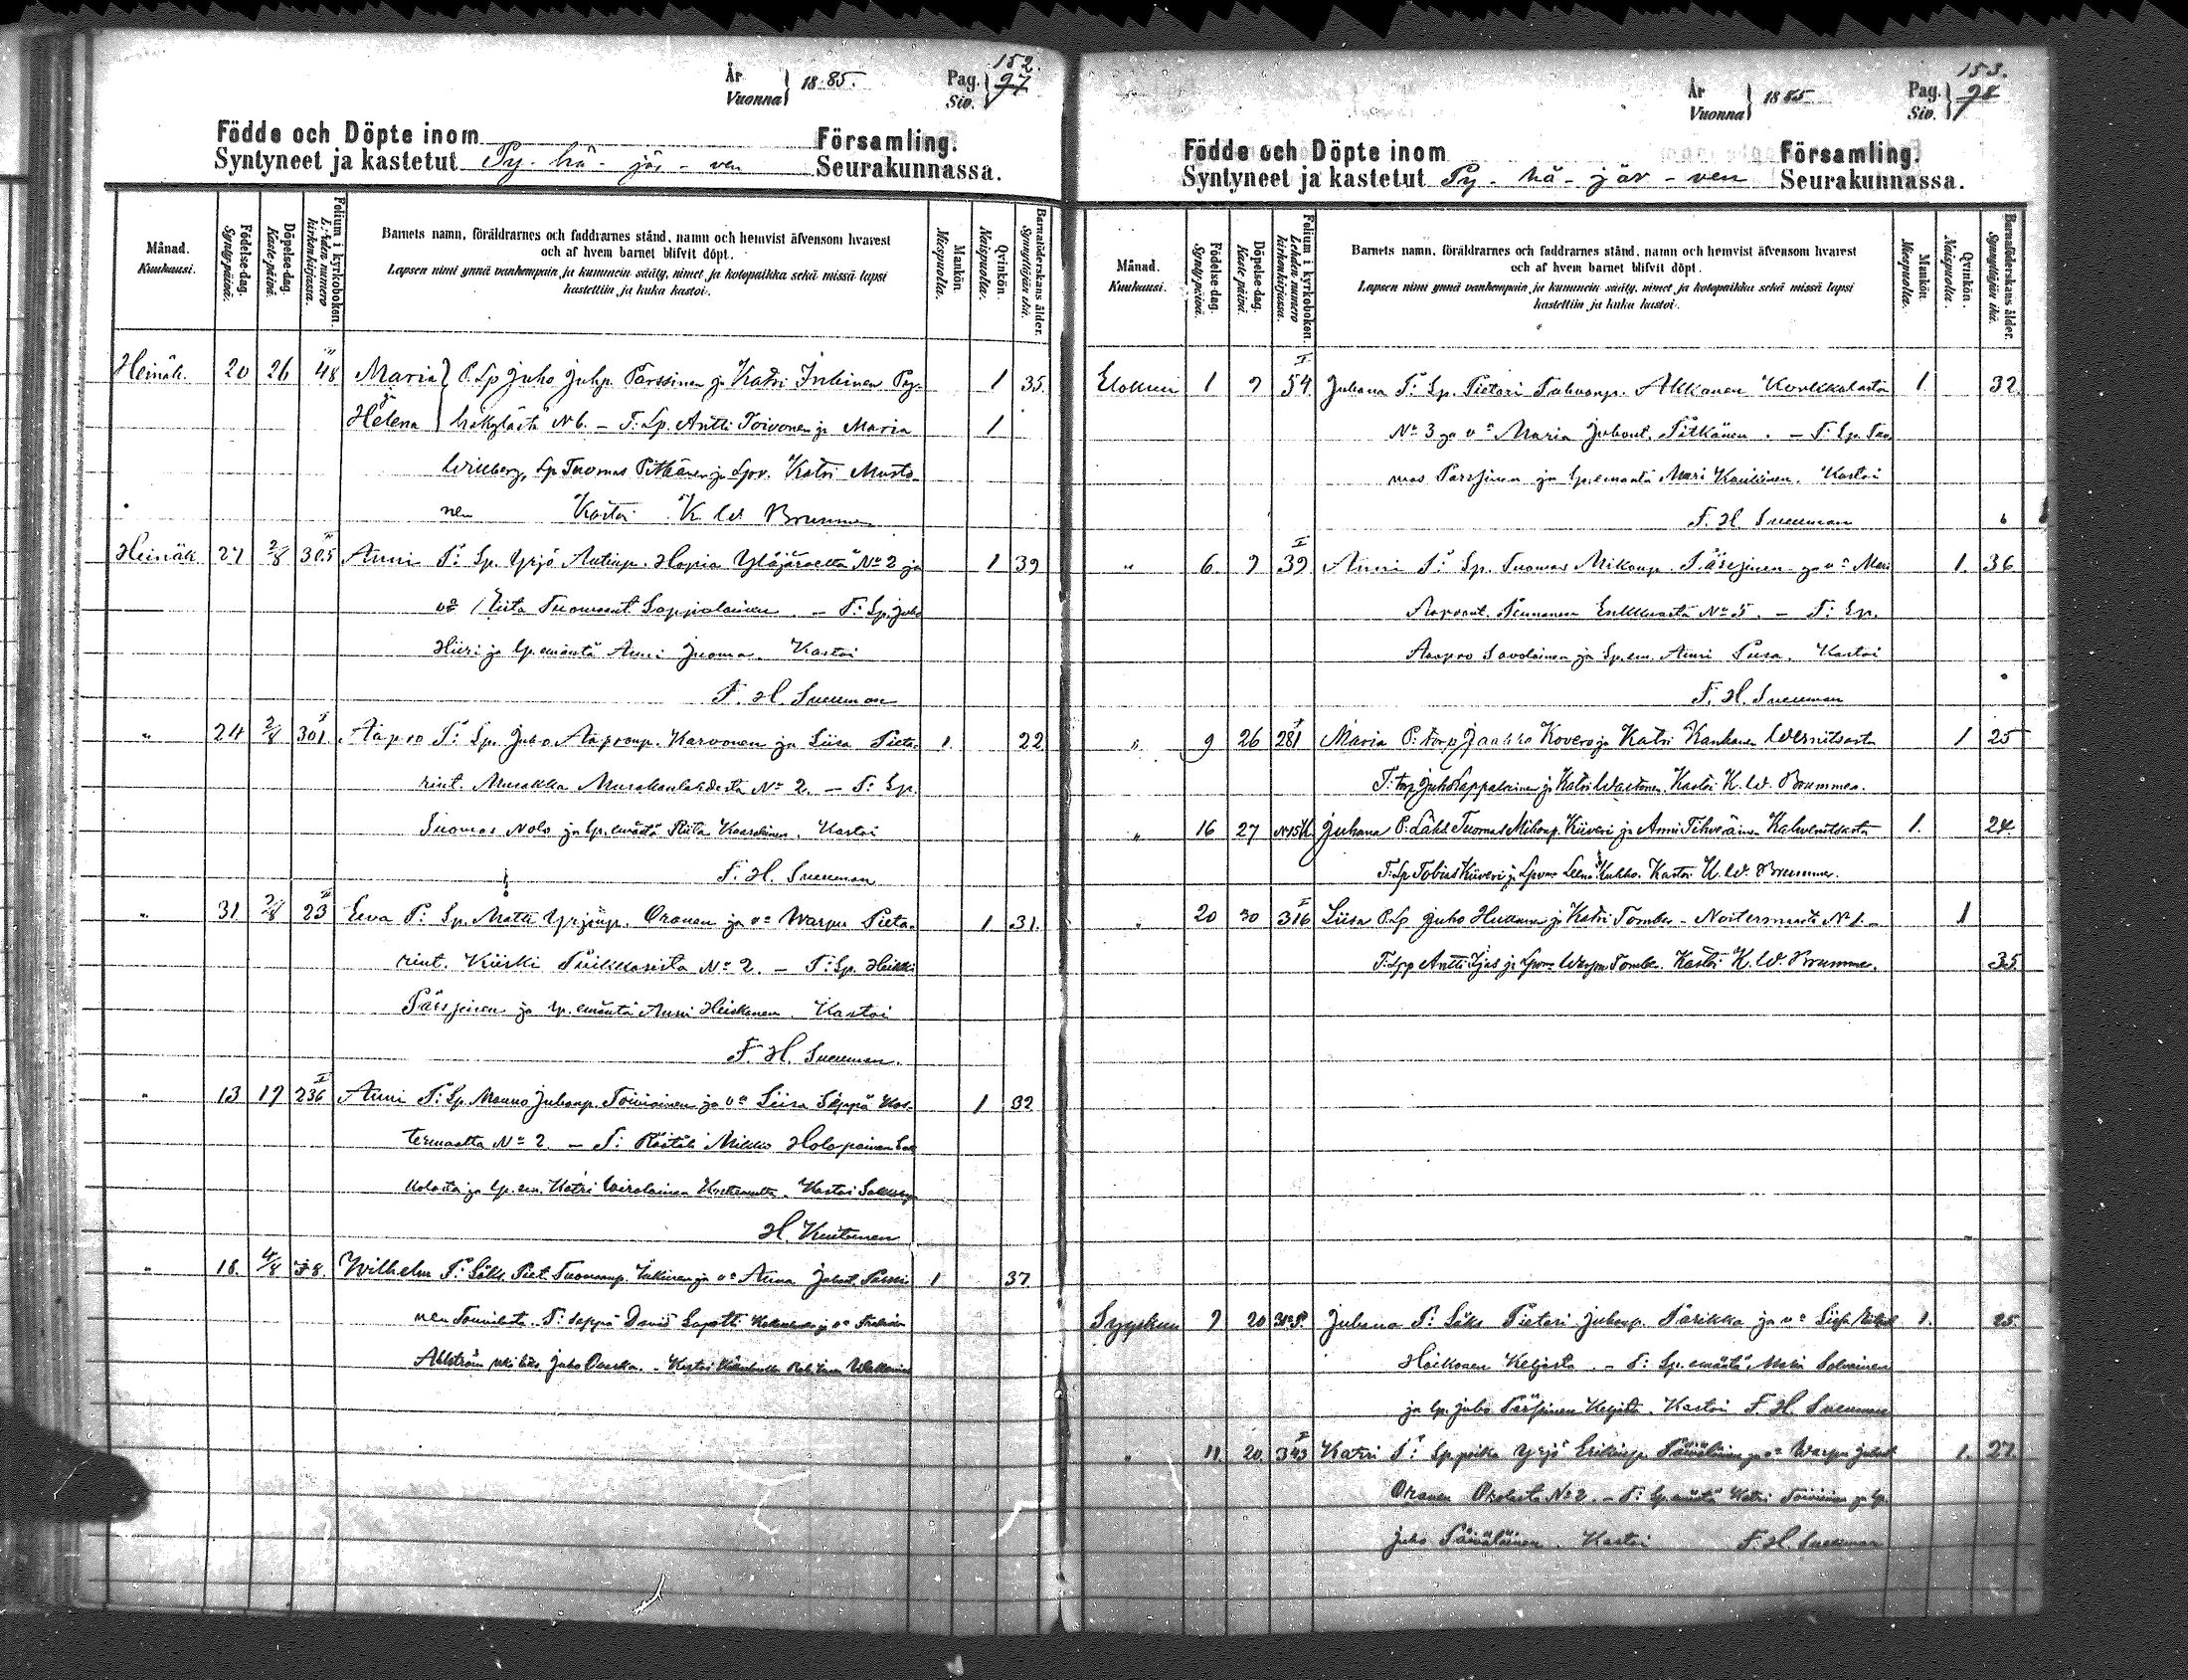 152.
År
Vuonna } 1885.
Pag.
Siv. } 97
Födde och Döpte inom Församling.
Syntyneet ja kastetut Py-hä-jär-ven Seurakunnassa.
Månad.
Kuukausi.
Födelse-dag.
Syntypäivä.
Döpelse-dag.
Kaste-päivä.
Folium i kyrkoboken.
Lehden numero kirkonkirjassa.
Barnets namn, föräldrarnes och faddrarnes stånd, namn och hemvist äfvensom hvarest
och af hvem barnet blifvit döpt.
Lapsen nimi ynnä vanhempain ja kummein sääty, nimet ja kotopaikka sekä missä lapsi
kastettiin ja kuka kastoi.
Mankön.
Miespuolia.
Qvinkön.
Naispuolia.
Barnaföderskans ålder.
Synnyttäjän ikä.
Heinäk. 20 26 III 48 Maria } P. Lp Juho Juhp. Parssinen ja Katri Inkinen Py- 1 35.
ja
Helena } häkylästä N 6. – T: Lp. Antti Toivonen ja Maria 1
Willberg, Lp Tuomas Pitkänen ja Lpv. Katri Musto-
nen Kastoi K. W. Brummer
Heinäk 27 2/8 305 Anni T: Lp. Yrjö Antinp. Hopia Yläjärveltä No 2 ja 1 39
vo Riita Tuomaant. Lappalainen. – T: Lp. Juho
Hiiri ja lp. emäntä Anni Juoma. Kastoi
F. H. Suuuman
" 24 2/8 I 301. Aapro T: Lp. Juho Aapronp. Karvonen ja Liisa Pieta- 1. 22
rint. Musakka Musakanlahdesta No 2. – T: Lp
Tuomas Nolo ja lp. emäntä Riita Kaasalainen. Kastoi
F. H. Suuuman
" 31 2/8 II 23 Eeva T: Lp. Matti Yrjönp. Oranen ja vo Warpu Pieta- 1 31.
rint. Kiiski Tiiikkasista No 2. – T: Lp. Heikki
Pärssinen ja lp. emäntä Anni Heiskanen. Kastoi
F. H. Suuuman.
" 13 19 I 236 Anni T: Lp. Mauno Juhonp. Toiviainen ja vo Liisa Seppä Kos- 1 32
termaalta No 2. – T: Räätäli Mikko Holopainen
ja lp. em. Katri Wirolainen Kostermaalta. Kastoi
H. Kiutonen
" 16. 4/8 58. Wilhelm T: Piet. Tuomaanp. Inkinen ja vo Anna 1 37
T: Seppä David Lapatti
Ahlström Juho Kastoi
153.
År
Vuonna } 1885
Pag.
Siv. } 98
Födde och Döpte inom Församling.
Syntyneet ja kastetut Py-hä-jär-ven Seurakunnassa.
Månad.
Kuukausi.
Födelse-dag.
Syntypäivä.
Döpelse-dag.
Kaste-päivä.
Folium i kyrkoboken.
Lehden numero kirkonkirjassa.
Barnets namn, föräldrarnes och faddrarnes stånd, namn och hemvist äfvensom hvarest
och af hvem barnet blifvit döpt.
Lapsen nimi ynnä vanhempain ja kummein sääty, nimet ja kotopaikka sekä missä lapsi
kastettiin ja kuka kastoi.
Mankön.
Miespuolia.
Qvinkön.
Naispuolia.
Barnaföderskans ålder.
Synnyttäjän ikä.
Elokuu 1 9 I 54 Juhana T: Lp. Pietari Tahvonp. Akkanen Konkkalasta 1. 32.
No 3 ja vo Maria Juhont. Pitkänen. – T: Lp. Tuo-
mas Parssinen ja lp. emäntä Mari Kaukinen. Kastoi
F. H. Suuuman
" 6. 9 I 39 Anni T: Lp. Tuomas Mikonp. Pärssinen ja vo Mari 1. 36
Aapront. Pennanen Enkkuasta No 5. – T: Lp.
Aapro Savolainen ja Lp. em. Anni Pusa. Kastoi
F. H. Suuuman
" 9 26 I 281 Maria P: torp Jaakko Kovero ja Katri Kankanen Wernitsasta 1 25
T: torp Juho Lappalainen ja Katri Wastonen. Kastoi K. W. Brummer.
" 16 27 Juhana P: Tuomas Mikonp. Kiiveri ja Anni Tihveräinen Kahvenitsasta 1. 24.
T: Lp Tobias Kiiveri ja Leena Kukko. Kastoi K. W. Brummer.
" 20 30 I 316 Liisa P. Lp Juho Hukkanen ja Katri Tomber – Nostermaasta No 1. – 1
T: Antti Ijas ja Warpu Tomber. Kastoi K. W. Brummer. 35
Syyskuu 9 20 Juhana T: Pietari Juhonp. Parikka ja vo Liisa 1. 25.
Hoikonen Keljasta. – T: Lp. emäntä Mari
ja lp. Juho Pärssinen Keljasta. Kastoi F. H. Suuuman
" 11. 20. I 343 Katri T: Lp. poika Yrjö Erikinp. Päiväläinen ja vo Warpu Juhont 1. 27.
Oranen No 2. – T: lp. emäntä Katri Toiviainen ja lp.
Juho Päiväläinen. Kastoi F. H. Suuuman